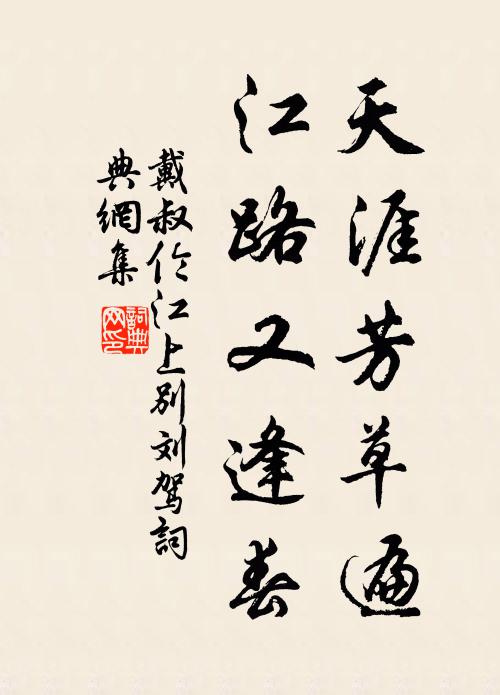 天涯芳草遍
江路又逢春
戴叔伦江上别刘驾詞
典網集
詞典网印